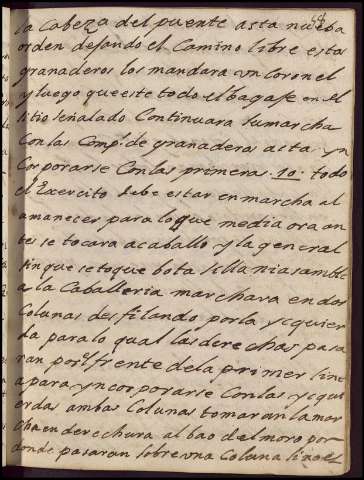 la Cabeza del puente asta nueba
orden dejando el Camino libre estos
granaderos los mandara vn Coronel
y luego que este todo el bagaje en el
sitio señalado Continuara su marcha
Con las Comp.s de granaderos asta yn
Corporarse Con las primeras 10. todo
el Exercito debe estar en marcha al
amanecer para lo que media ora an
tes se tocara acaballo y la general
sin que se toque bota silla ni asamble
a la Caballeria marchara en dos
Colunas desfilando por la yzquier
da para lo qual las derechas pasa
ran por el frente de la primer line
a para yncorporarse Con las yzqui
erdas ambas Colunas tomaran la mar
cha en derechura al bao del moro por
donde pasaran sobre vna Coluna sino es